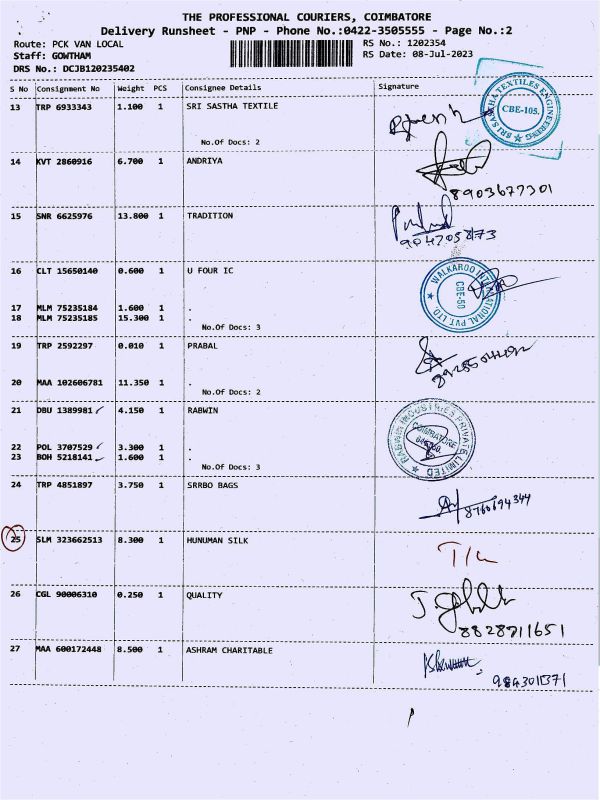 THE PROFESSIONAL COURIERS, COIMBATORE
Delivery Runsheet - PNP - Phone No.:0422-3505555 - Page No.:2
Route: PCK VAN LOCAL
RS No.: 1202354
Staff: GOWTHAM
RS Date: 08-Jul-2023
DRS No.: DCJB120235402
S No Consignment No Weight PCS Consignee Details Signature
13 TRP 6933343 1.100 1 SRI SASTHA TEXTILE
SRI SASTHA TEXTILES ENGINEERING
CBE-105.
No.Of Docs: 2
14 KVT 2860916 6.700 1 ANDRIYA
8903677301
15 SNR 6625976 13.800 1 TRADITION
16 CLT 15650140 0.600 1 U FOUR IC
WALKAROO INTERNATIONAL PVT. LTD.
CBE-50
17 MLM 75235184 1.600 1 .
18 MLM 75235185 15.300 1 .
No.Of Docs: 3
19 TRP 2592297 0.010 1 PRABAL
20 MAA 102606781 11.350 1 .
No.Of Docs: 2
21 DBU 1389981 4.150 1 RABWIN
RABWIN INDUSTRIES PRIVATE LIMITED
COIMBATORE
22 POL 3707529 3.300 1 .
23 BOH 5218141 1.600 1 .
No.Of Docs: 3
24 TRP 4851897 3.750 1 SRRBO BAGS
8760694344
25 SLM 323662513 8.300 1 HUNUMAN SILK
26 CGL 90006310 0.250 1 QUALITY
8828711651
27 MAA 600172448 8.500 1 ASHRAM CHARITABLE